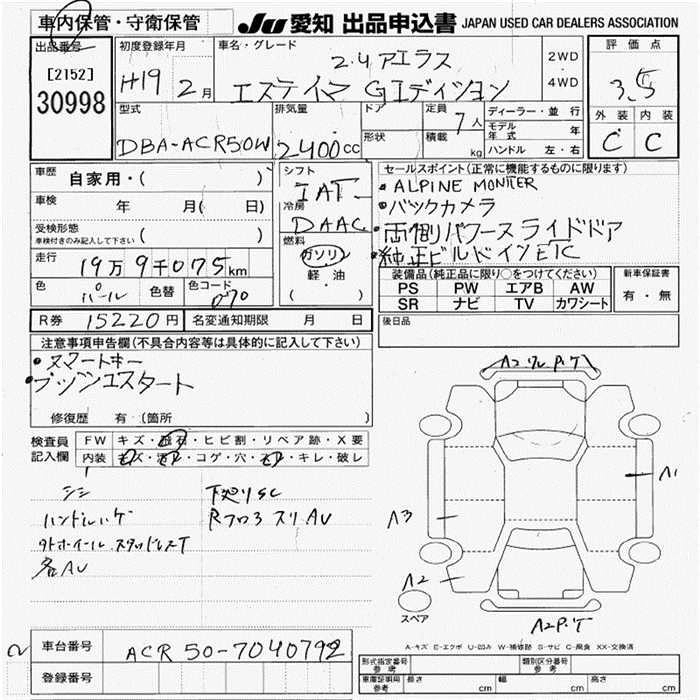 車内保管・守衛保管 JU 愛知 出品申込書 JAPAN USED CAR DEALERS ASSOCIATION
出品番号 初度登録年月 車名・グレード 評価点
[2152] 2.4アエラス 2WD
30998 H19 2月 エスティマ Gエディション 4WD 3.5
型式 排気量 ドア 定員 ディーラー・並行 外装 内装
DBA-ACR50W 2400cc 形状 7人 モデル年式 年 C C
積載 kg ハンドル 左・右
車歴 自家用・( ) シフト セールスポイント(正常に機能するものに限ります)
IAT ALPINE MONITER
車検 年 月( 日) 冷房 バックカメラ
受検形態 DAAC 両側パワースライドドア
車検付きのみ記入して下さい ( ) 燃料 純正ビルドインETC
走行 19万9千075km ガソリン 装備品(純正品に限り○をつけてください) 新車保証書
軽油 PS PW エアB AW 有・無
色 パール 色替 色コード 070 ( ・ ) SR ナビ TV カワシート
R券 15220円 名変通知期限 月 日 後日品
注意事項申告欄(不具合内容等は具体的に記入して下さい)
スマートキー
プッシュスタート
修復歴 有 (箇所 )
検査員 FW キズ・飛石・ヒビ割・リペア跡・X要
記入欄 内装 キズ・汚れ・コゲ・穴・・キレ・破レ
A1
ハンドルハゲ A3
外ホイール スタッドレスT
各AU A2
スペア
A2 P.ケ
A-キズ E-エクボ U-凹み W-補修跡 S-サビ C-腐食 XX-交換済
車台番号 ACR 50-7040792
登録番号
形式指定番号 参考 類別区分番号 参考
車庫証明用 参考 長さ cm 幅 cm 高さ cm